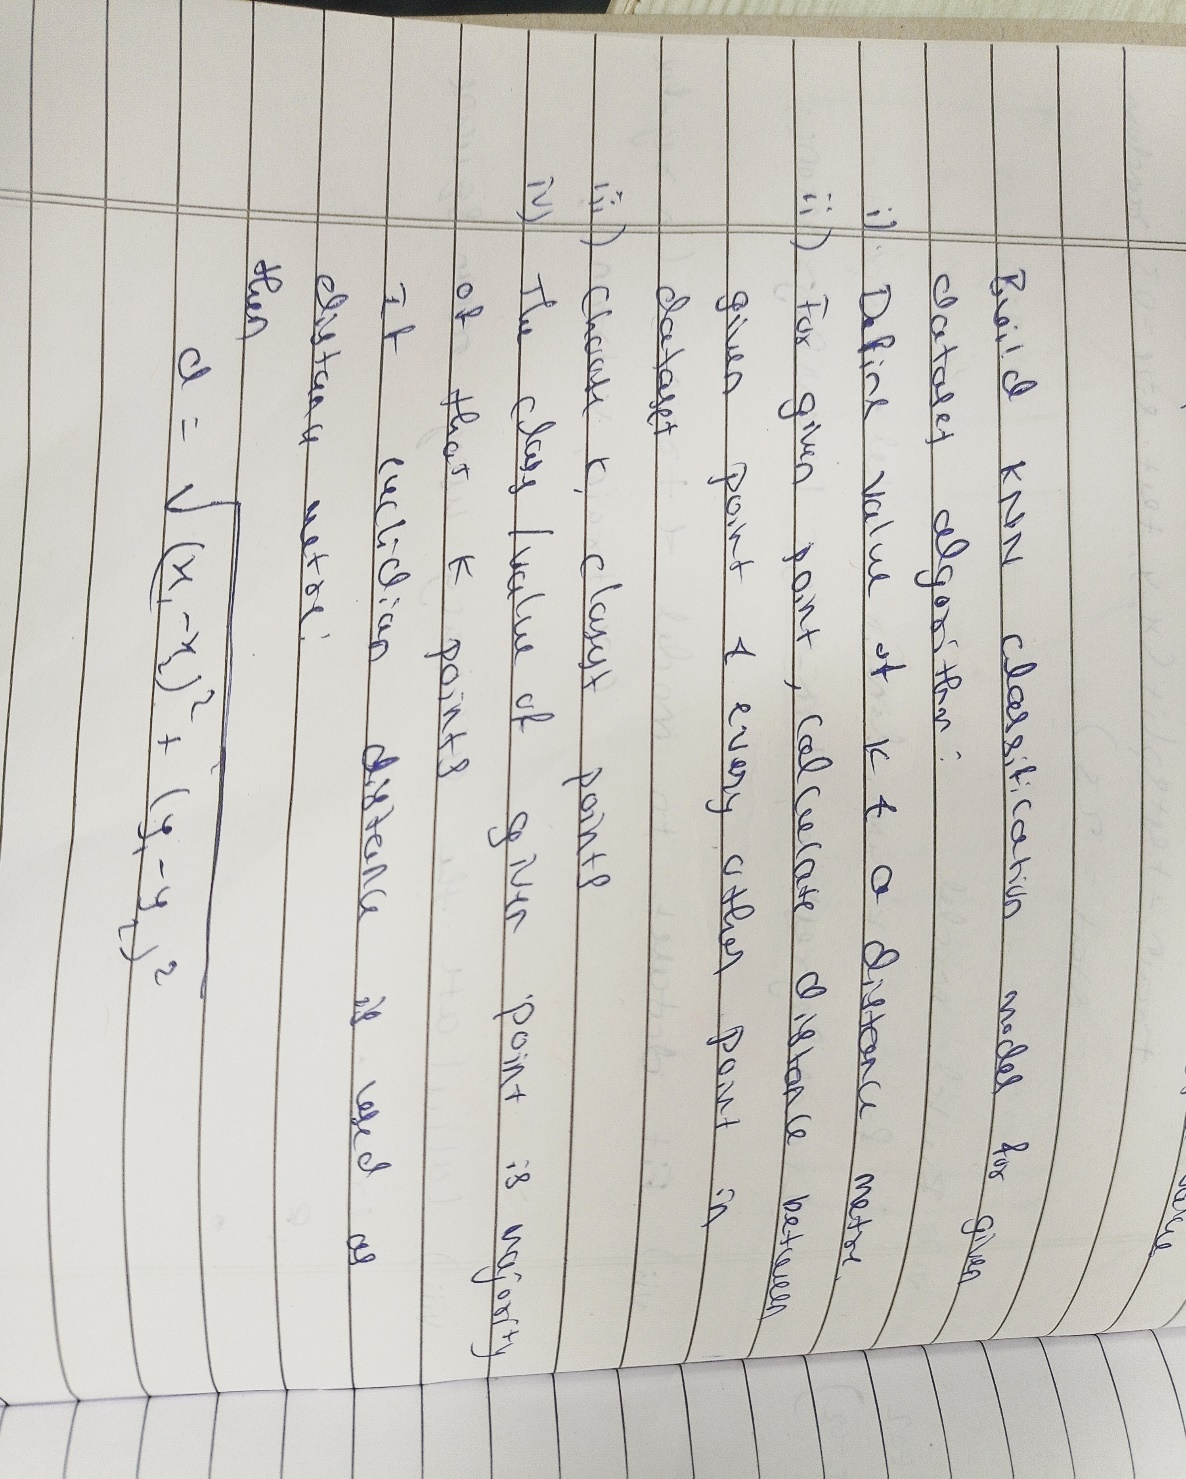 Build KNN classification model for given
dataset algorithm :
i) Define value of K & a distance metric.
ii) For given point, calculate distance between
given point & every other point in
dataset
iii) Choose K closest points
iv) The class / value of given point is majority
of that K points
If euclidian distance is used as
distance metric
then
d = √(x₁-x₂)² + (y₁-y₂)²